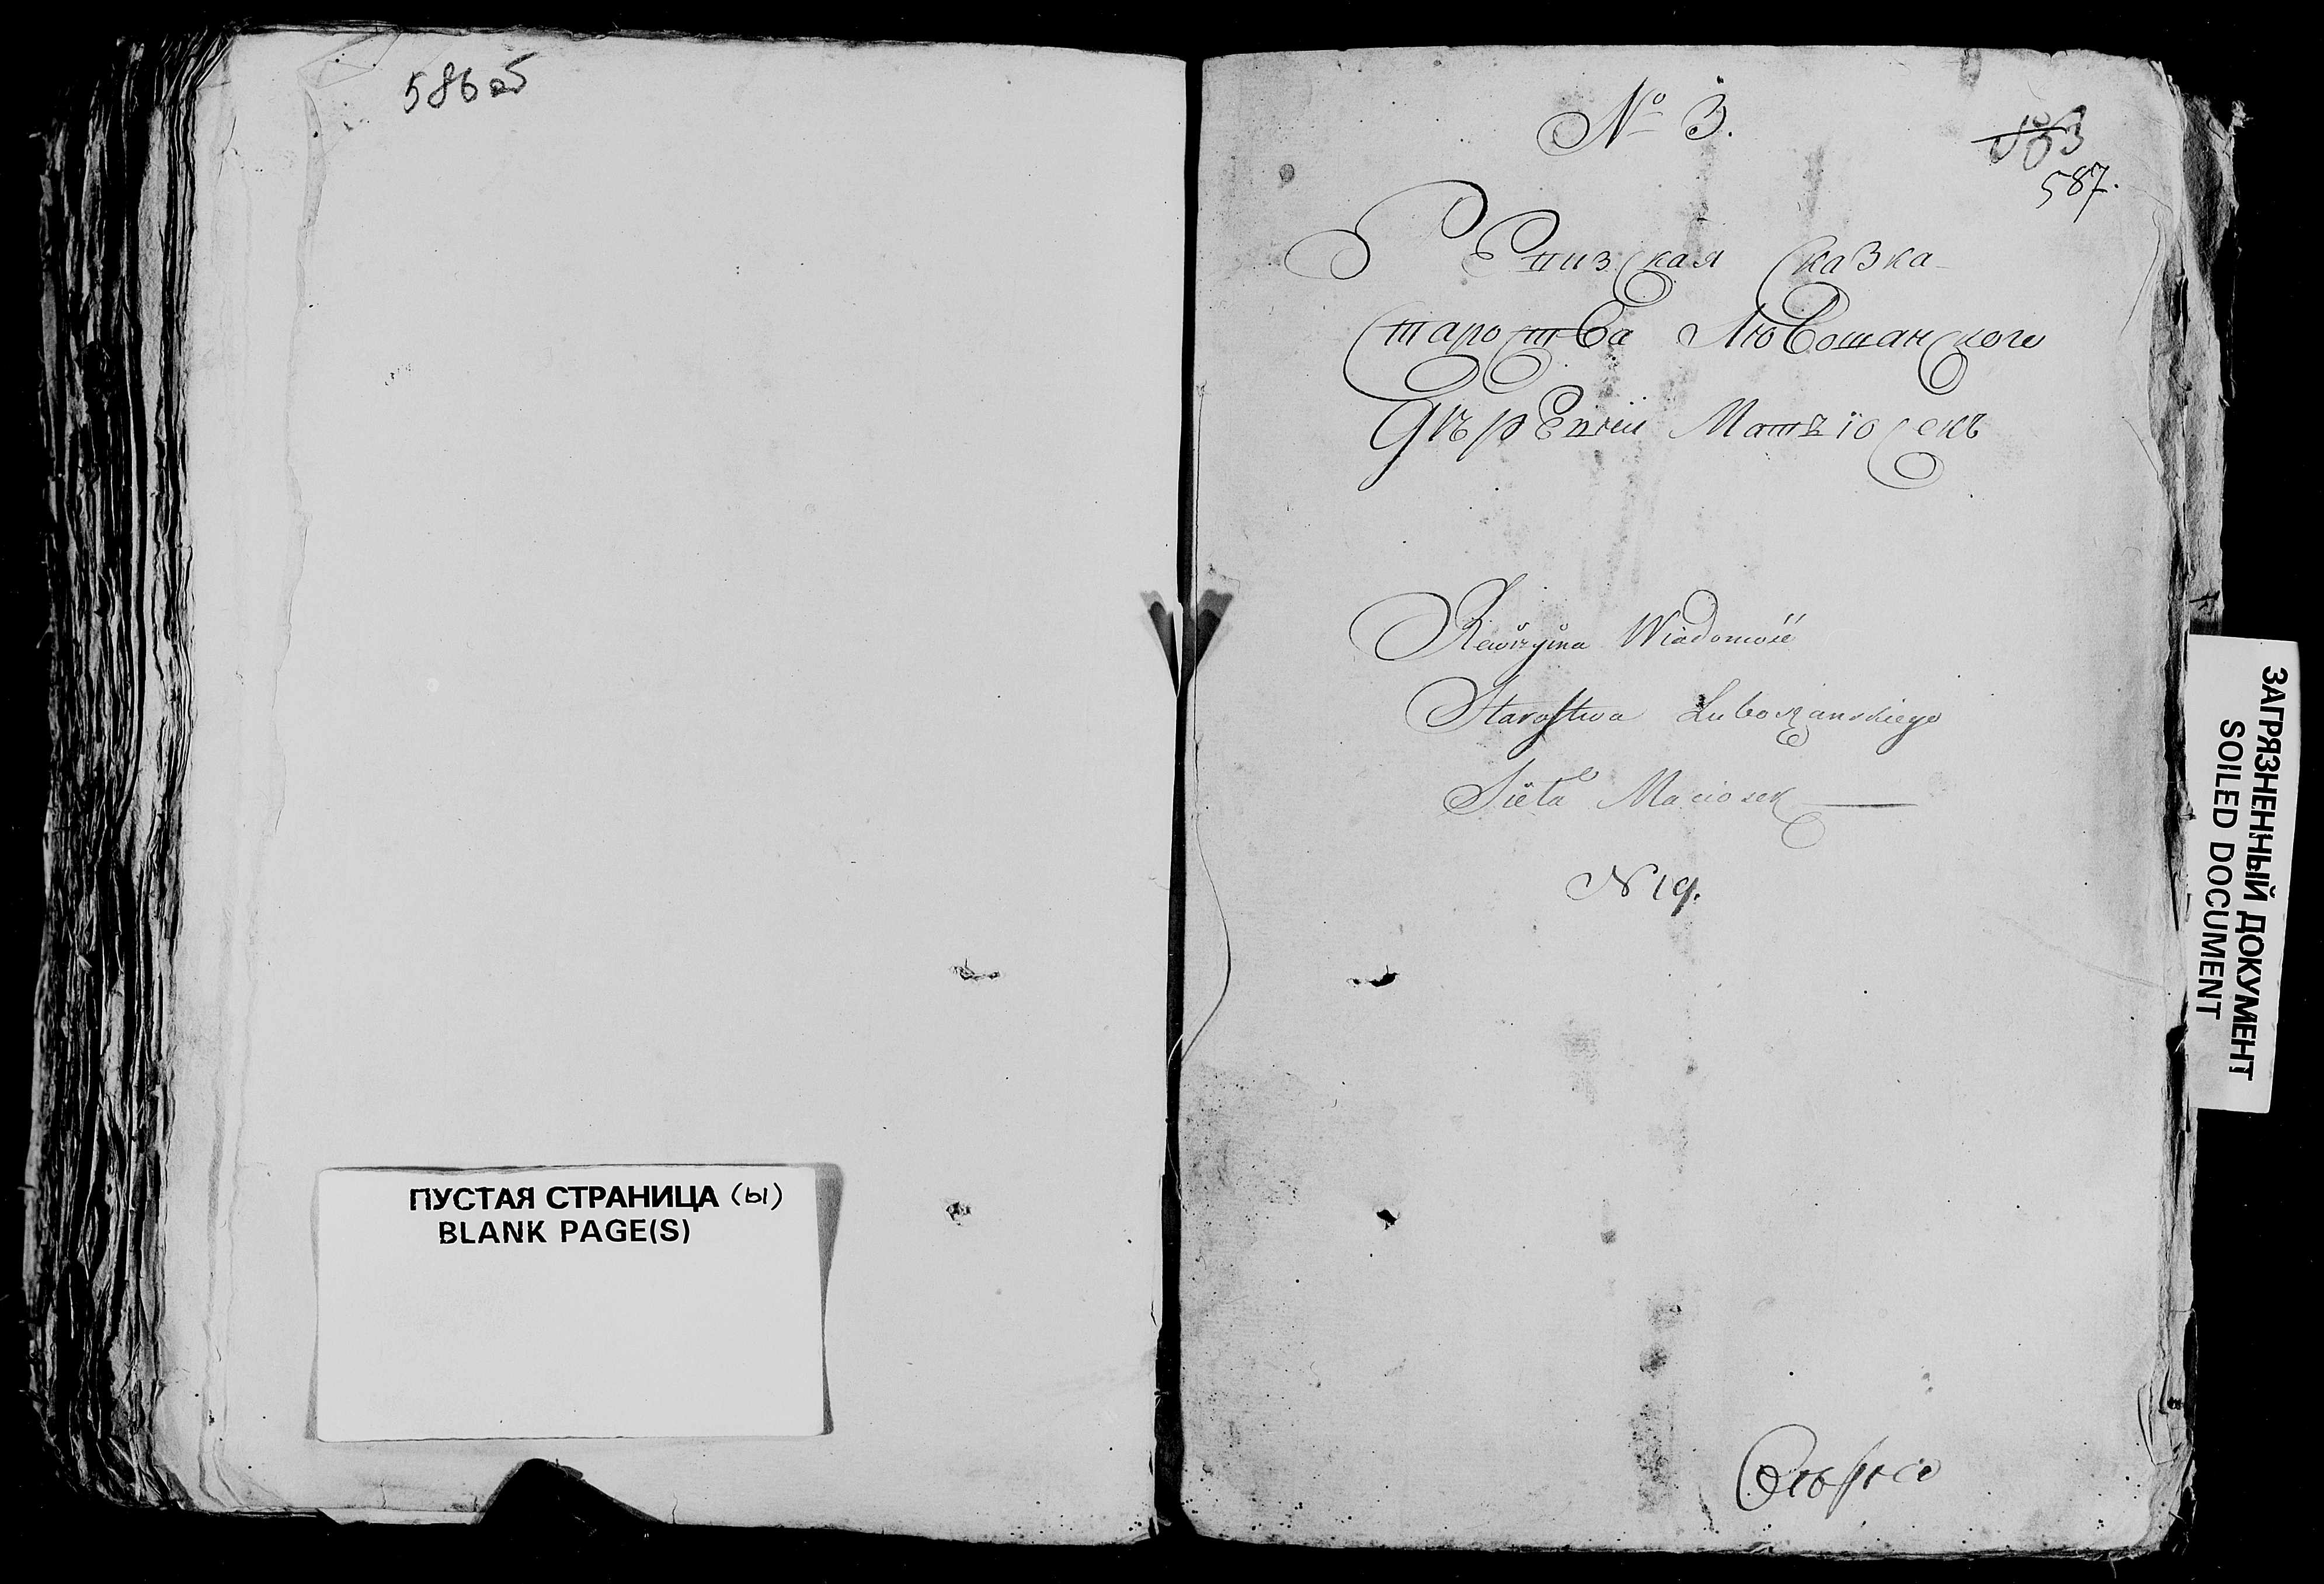 586 об
ПУСТАЯ СТРАНИЦА (ы)
BLANK PAGE(S)
№ 3.
587.
РЕвизская Сказка
Староства Любошанского
ДѣрЕвни Матьіосекъ
Rewizyina Wiadomość
Starostwa Luboszanskiego
Sioła Maciosek
N 19.
ЗАГРЯЗНЕННЫЙ ДОКУМЕНТ
SOILED DOCUMENT